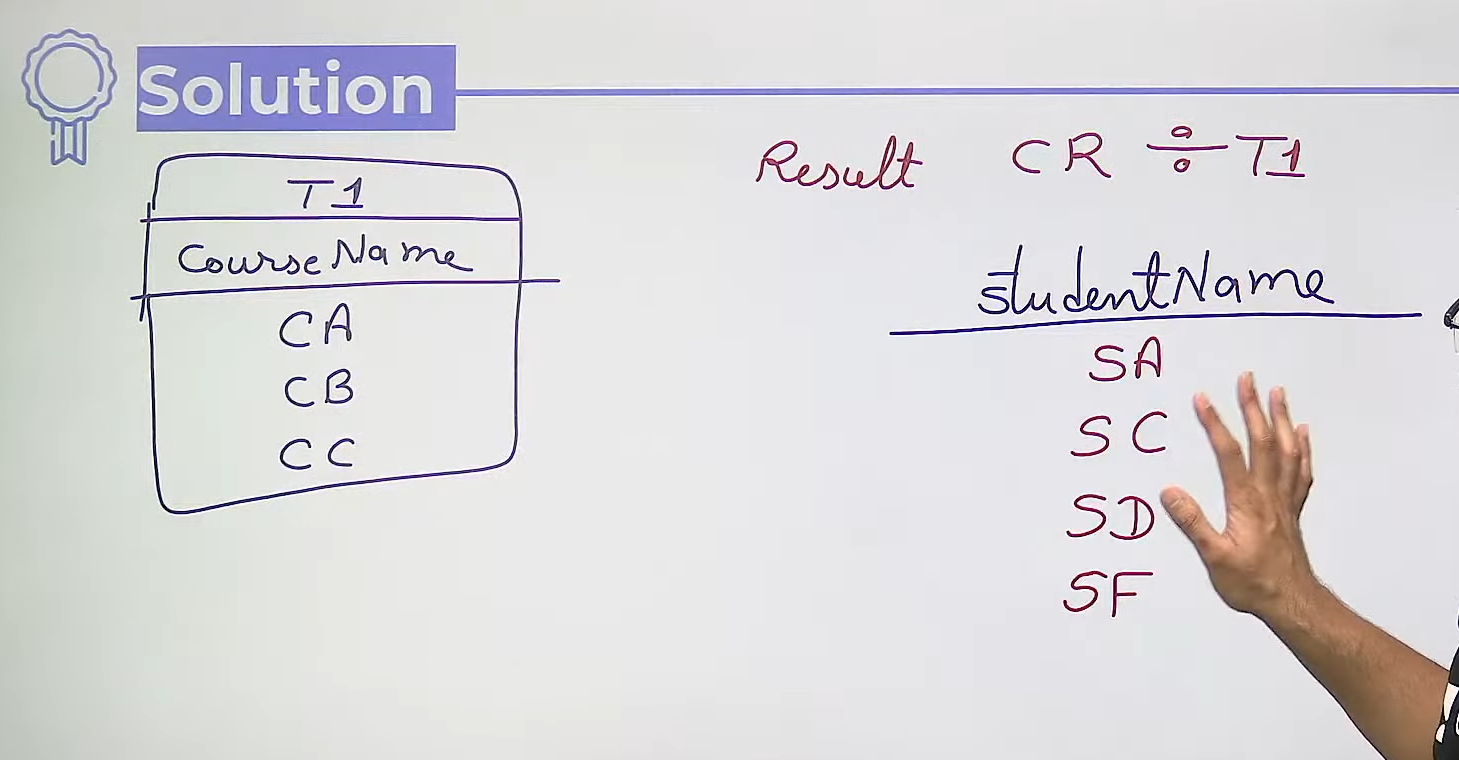 Solution
T1
CourseName
CA
CB
CC
Result CR ÷ T1
studentName
SA
SC
SD
SF